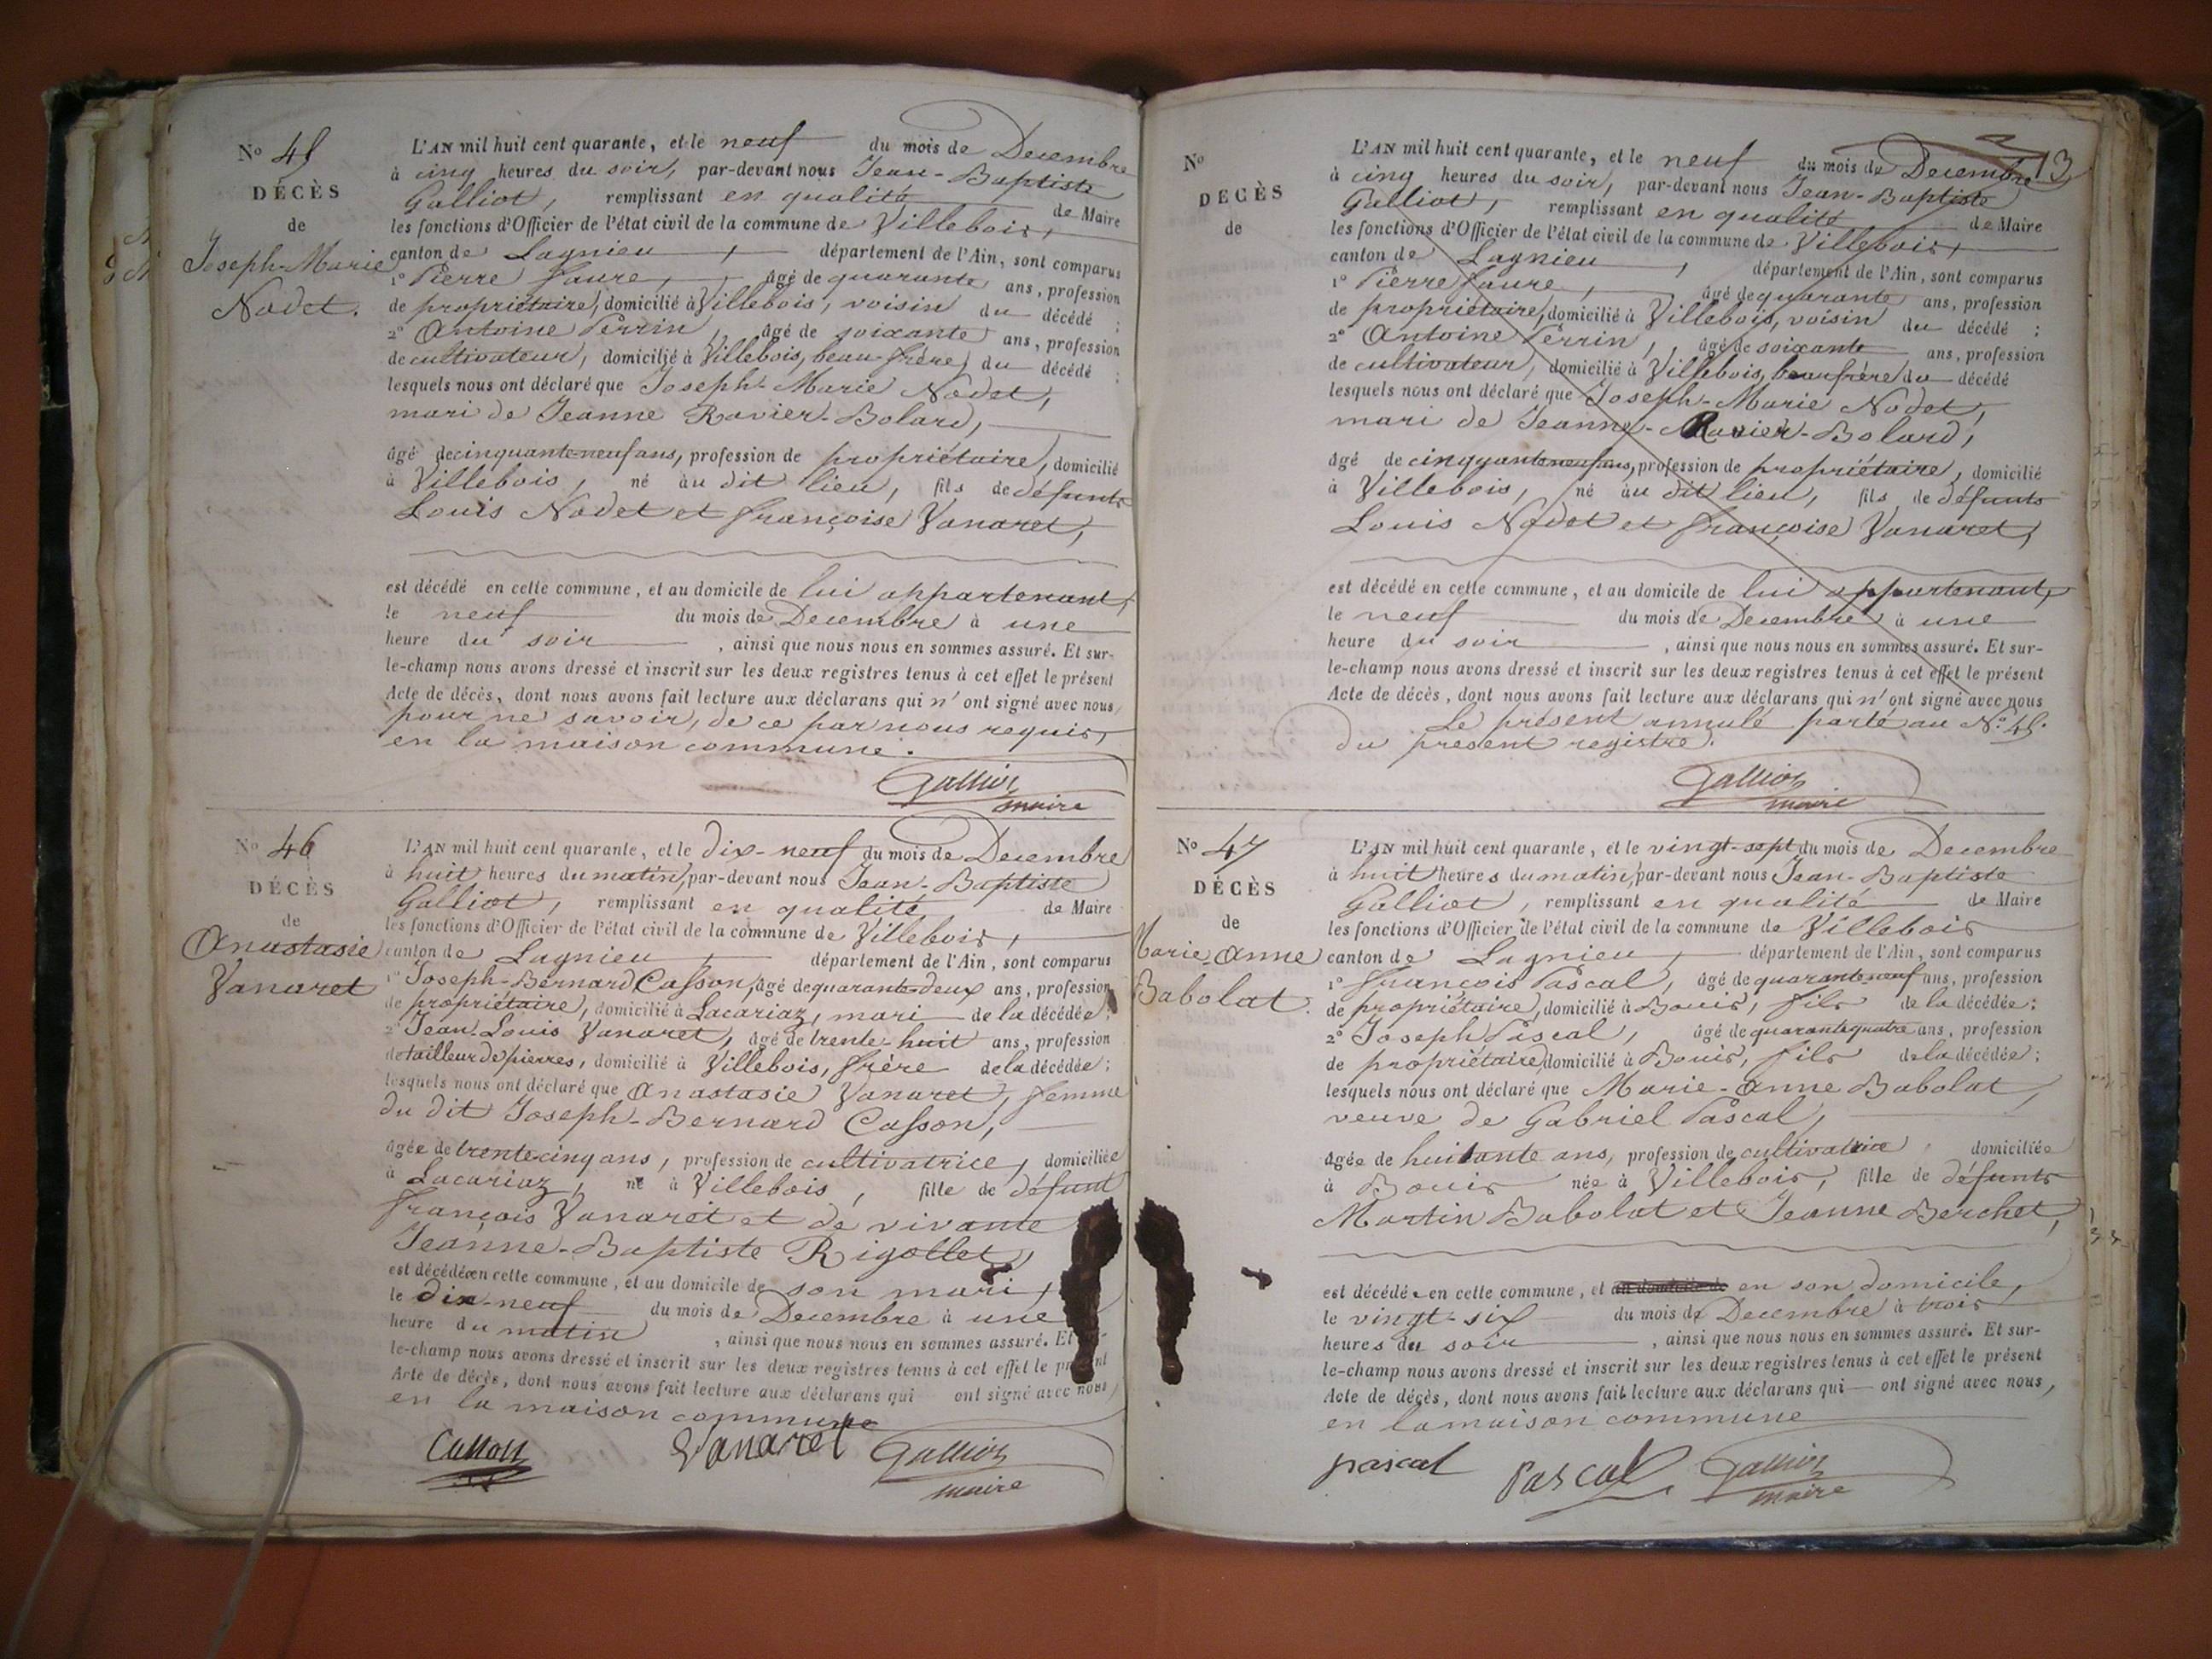 N° 45
DÉCÈS
de
Joseph-Marie
Nodet.
L'AN mil huit cent quarante, et le neuf du mois de Decembre
à cinq heures du soir, par-devant nous Jean-Baptiste
Galliot, remplissant en qualité de Maire
les fonctions d'Officier de l'état civil de la commune de Villebois,
canton de Lagnieu, département de l'Ain, sont comparus
1° Pierre Faure, âgé de quarante ans, profession
de propriétaire, domicilié à Villebois, voisin du décédé ;
2° Antoine Perrin, âgé de soixante ans, profession
de cultivateur, domicilié à Villebois, beau-frère du décédé ;
lesquels nous ont déclaré que Joseph-Marie Nodet,
mari de Jeanne Ravier-Bolard,
âgé de cinquante-neuf ans, profession de propriétaire, domicilié
à Villebois, né au dit lieu, fils de défunts
Louis Nodet et Françoise Vanaret,
est décédé en cette commune, et au domicile de lui appartenant,
le neuf du mois de Decembre à une
heure du soir, ainsi que nous nous en sommes assuré. Et sur-
le-champ nous avons dressé et inscrit sur les deux registres tenus à cet effet le présent
Acte de décès, dont nous avons fait lecture aux déclarans qui n'ont signé avec nous,
pour ne savoir, de ce par nous requis,
en la maison commune.
Galliot
maire
N° 46
DÉCÈS
de
Anastasie
Vanaret
L'AN mil huit cent quarante, et le dix-neuf du mois de Decembre
à huit heures du matin, par-devant nous Jean-Baptiste
Galliot, remplissant en qualité de Maire
les fonctions d'Officier de l'état civil de la commune de Villebois,
canton de Lagnieu, département de l'Ain, sont comparus
1° Joseph-Bernard Casson, âgé de quarante-deux ans, profession
de propriétaire, domicilié à Lacariaz, mari de la décédée ;
2° Jean-Louis Vanaret, âgé de trente-huit ans, profession
de tailleur de pierres, domicilié à Villebois, frère de la décédée ;
lesquels nous ont déclaré que Anastasie Vanaret, femme
du dit Joseph-Bernard Casson,
âgée de trente-cinq ans, profession de cultivatrice, domiciliée
à Lacariaz, né à Villebois, fille de défunt
François Vanaret et de vivante
Jeanne-Baptiste Rigollet,
est décédée en cette commune, et au domicile de son mari,
le dix-neuf du mois de Decembre à une
heure du matin, ainsi que nous nous en sommes assuré. Et
le-champ nous avons dressé et inscrit sur les deux registres tenus à cet effet le présent
Acte de décès, dont nous avons fait lecture aux déclarans qui ont signé avec nous,
en la maison commune
Casson Vanaret Galliot
maire
13
N°
DÉCÈS
de
L'AN mil huit cent quarante, et le neuf du mois de Decembre
à cinq heures du soir, par-devant nous Jean-Baptiste
Galliot, remplissant en qualité de Maire
les fonctions d'Officier de l'état civil de la commune de Villebois,
canton de Lagnieu, département de l'Ain, sont comparus
1° Pierre Faure, âgé de quarante ans, profession
de propriétaire, domicilié à Villebois, voisin du décédé ;
2° Antoine Perrin, âgé de soixante ans, profession
de cultivateur, domicilié à Villebois, beaufrère du décédé
lesquels nous ont déclaré que Joseph-Marie Nodet,
mari de Jeanne-Ravier-Bolard,
âgé de cinquante neuf ans, profession de propriétaire, domicilié
à Villebois, né au dit lieu, fils de défunts
Louis Nodet et Françoise Vanaret,
est décédé en cette commune, et au domicile de lui appartenant,
le neuf du mois de Decembre à une
heure du soir, ainsi que nous nous en sommes assuré. Et sur-
le-champ nous avons dressé et inscrit sur les deux registres tenus à cet effet le présent
Acte de décès, dont nous avons fait lecture aux déclarans qui n'ont signé avec nous
Le présent annulé porté au N° 45.
du présent registre.
Galliot
maire
N° 47
DÉCÈS
de
Marie Anne
Babolat.
L'AN mil huit cent quarante, et le vingt-sept du mois de Decembre
à huit heures du matin, par-devant nous Jean-Baptiste
Galliot, remplissant en qualité de Maire
les fonctions d'Officier de l'état civil de la commune de Villebois
canton de Lagnieu, département de l'Ain, sont comparus
1° François Pascal, âgé de quarante-neuf ans, profession
de propriétaire, domicilié à Bouis, fils de la décédée ;
2° Joseph Pascal, âgé de quarante quatre ans, profession
de propriétaire, domicilié à Bouis, fils de la décédée ;
lesquels nous ont déclaré que Marie-Anne Babolat,
veuve de Gabriel Pascal,
âgée de huitante ans, profession de cultivatrice, domiciliée
à Bouis née à Villebois, fille de défunts
Martin Babolat et Jeanne Berchet,
est décédée en cette commune, et au domicile de en son domicile,
le vingt-six du mois de Decembre à trois
heures du soir, ainsi que nous nous en sommes assuré. Et sur-
le-champ nous avons dressé et inscrit sur les deux registres tenus à cet effet le présent
Acte de décès, dont nous avons fait lecture aux déclarans qui ont signé avec nous,
en la maison commune
pascal Pascal Galliot
maire